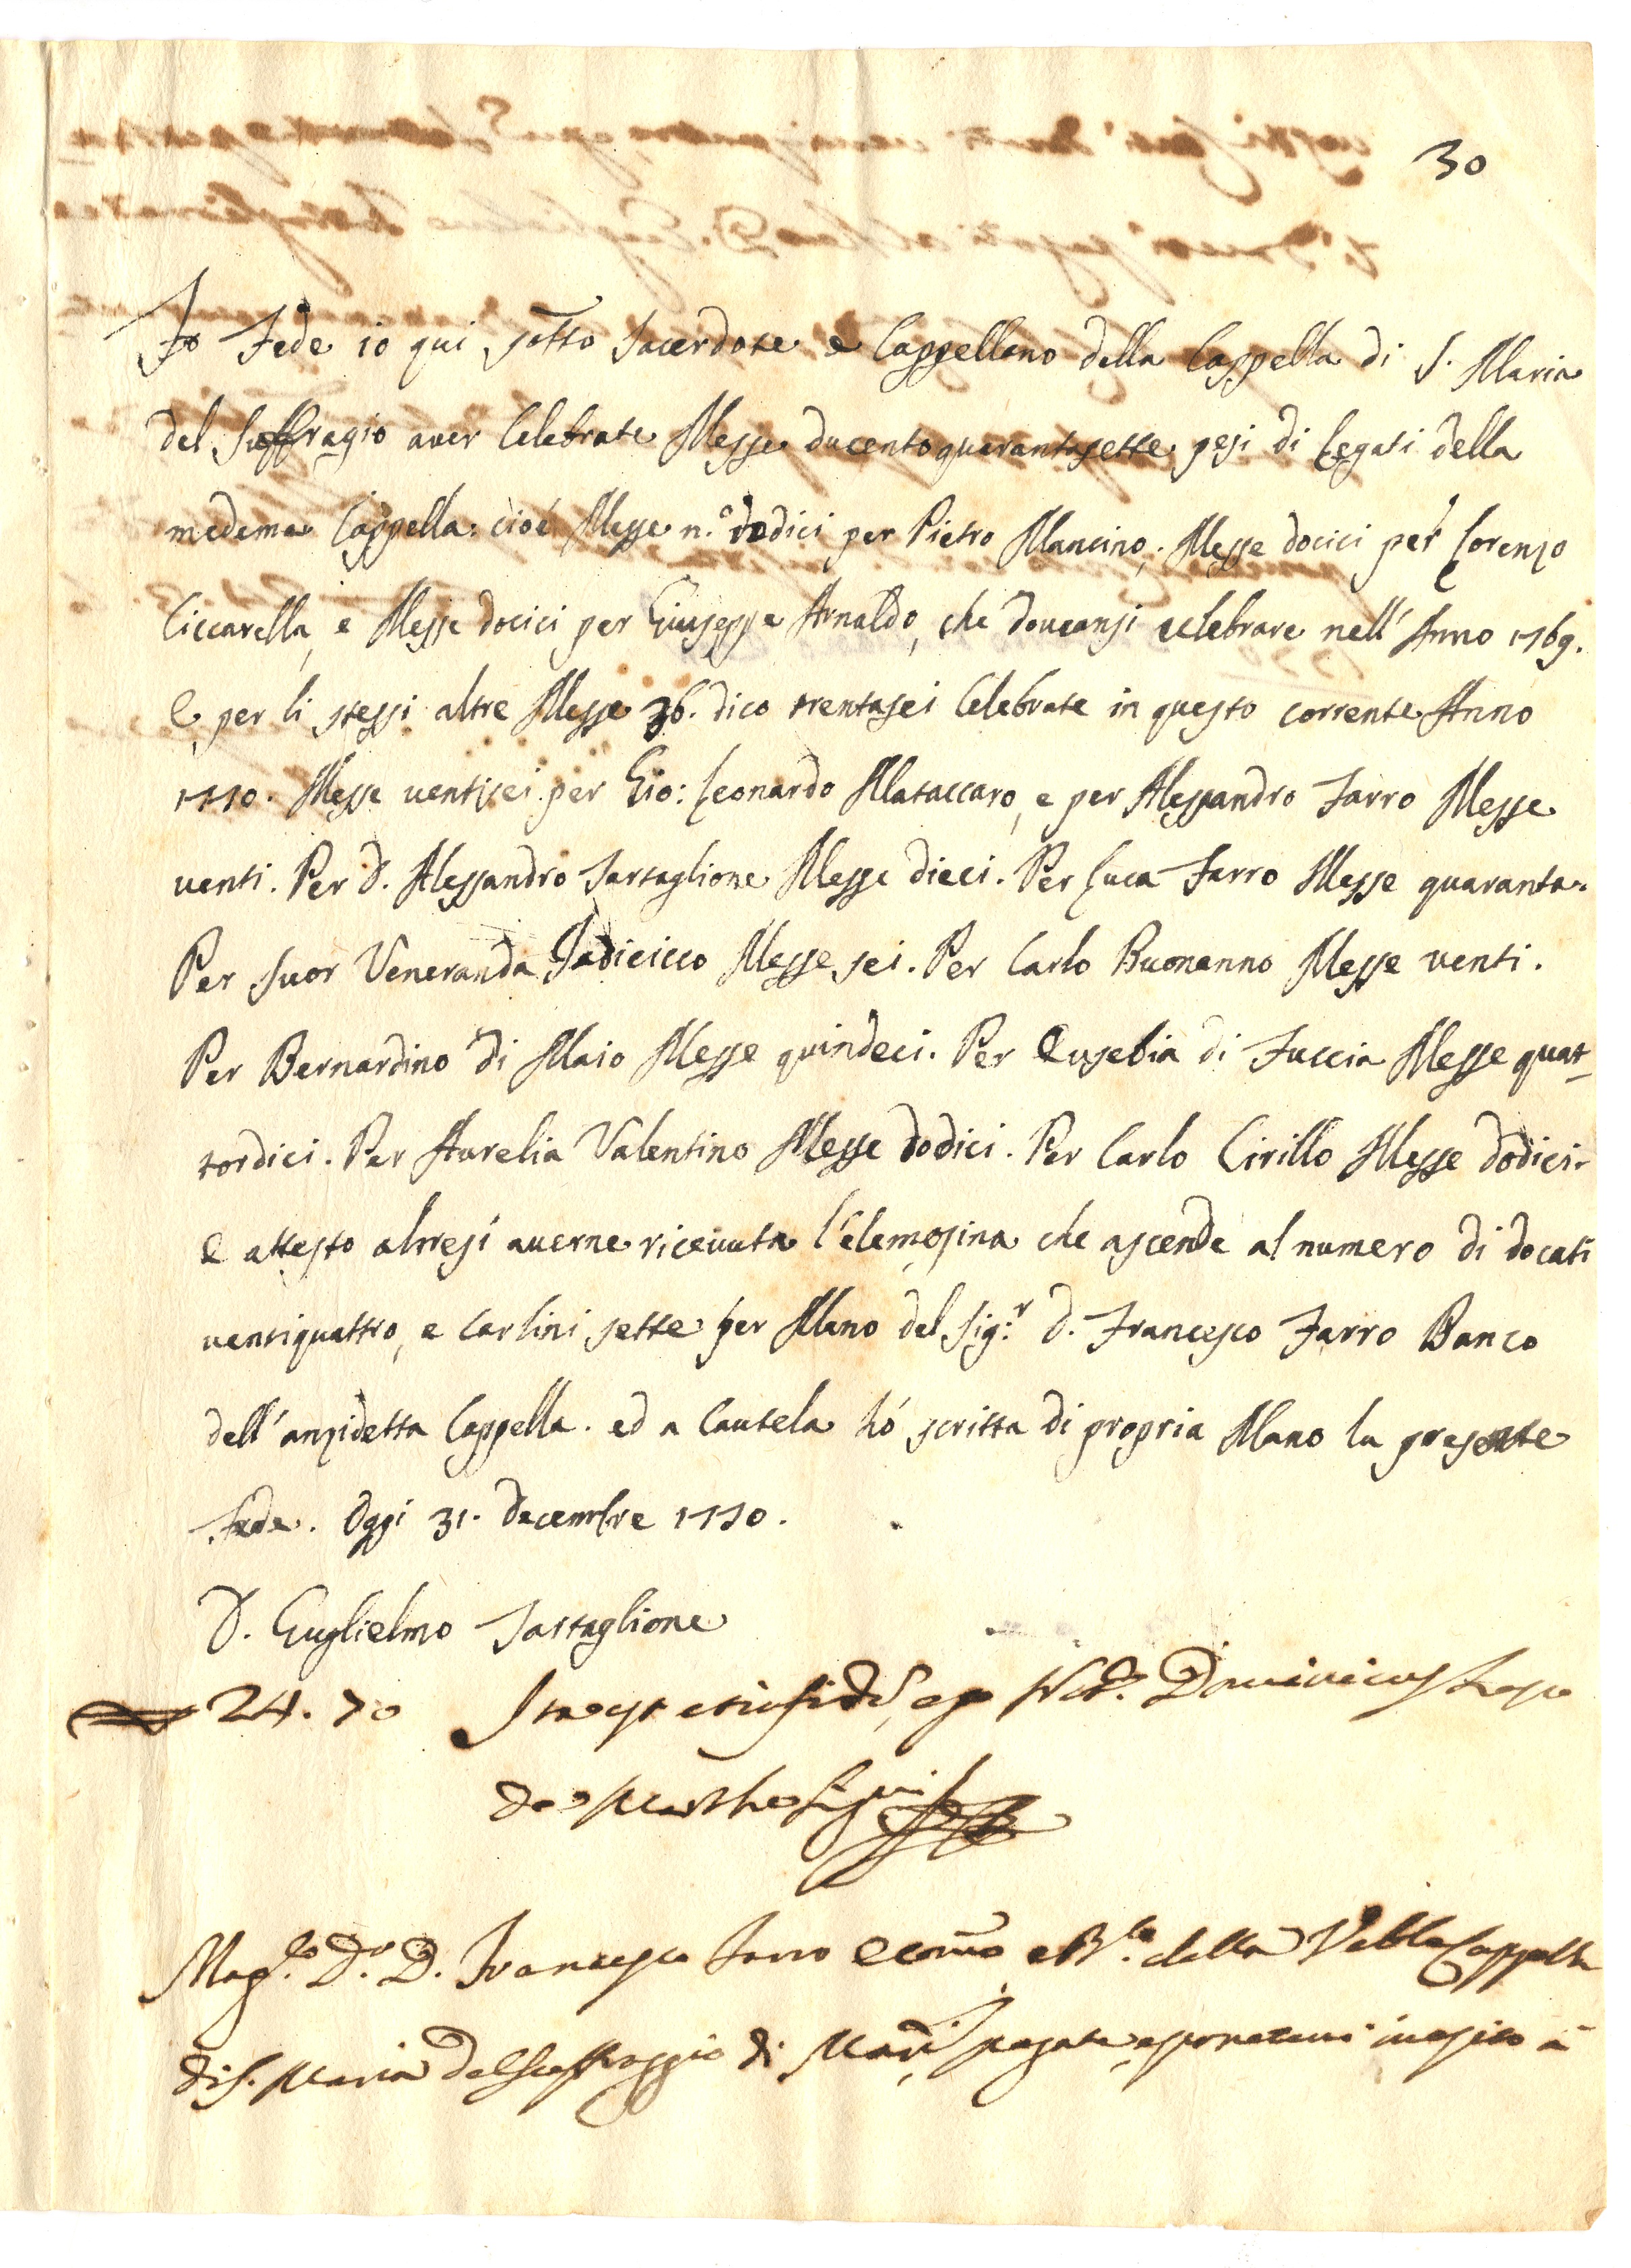 30
Fo Fede io qui sotto Sacerdote e Cappellano della Cappella di S. Maria
del Suffragio aver Celebrate Messe ducentoquarantasette pesi di Legati della
medema Cappella: cioé Messe n.º dodici per Pietro Mancino; Messe docici per Lorenzo
Ciccarella, e Messe docici per Giuseppe Arnaldo, che doveansi celebrare nell' Anno 1769.
E per li stessi altre Messe 36. dico trentasei Celebrate in questo corrente Anno
1770. Messe ventisei per Gio: Leonardo Mataccaro, e per Alessandro Farro Messe
venti. Per D. Alessandro Tartaglione Messe dieci. Per Luca Farro Messe quaranta.
Per Suor Veneranda Iadicicco Messe sei. Per Carlo Buonanno Messe venti.
Per Bernardino di Maio Messe quindeci. Per Eusebia di Fuccia Messe quat-
tordici. Per Aurelia Valentino Messe dodici. Per Carlo Cirillo Messe dodici.
E attesto altresí averne ricevuta l'elemosina che ascende al numero di docati
ventiquattro, e carlini sette per Mano del Sig.r D. Francesco Farro Banco
dell'anzidetta Cappella. ed a Cautela hó scritta di propria Mano la presente
Fede. Oggi 31. decembre 1770.
D. Guglielmo Tartaglione
24. 70 Ita est et in fidem, ego Not. Dominicus
de
Mag.co D.r D. Francesco Farro Econ̄o e B.co della Ven.le Cappella
di S. Maria del Suffraggio di pagate in esito à